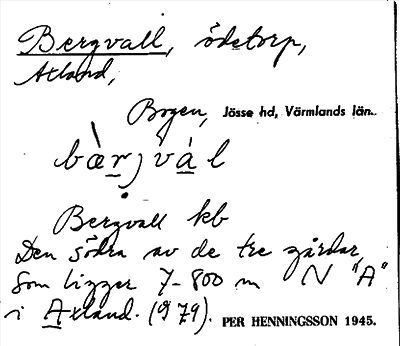 Bergvall, ödetorp,
Axland,
Bogen, Jösse hd, Värmlands län.
bær̲jvàl
Bergvall kb
Den södra av de tre gårdar,
som ligger 7-800 m N "A"
i Axland. (9 79). PER HENNINGSSON 1945.